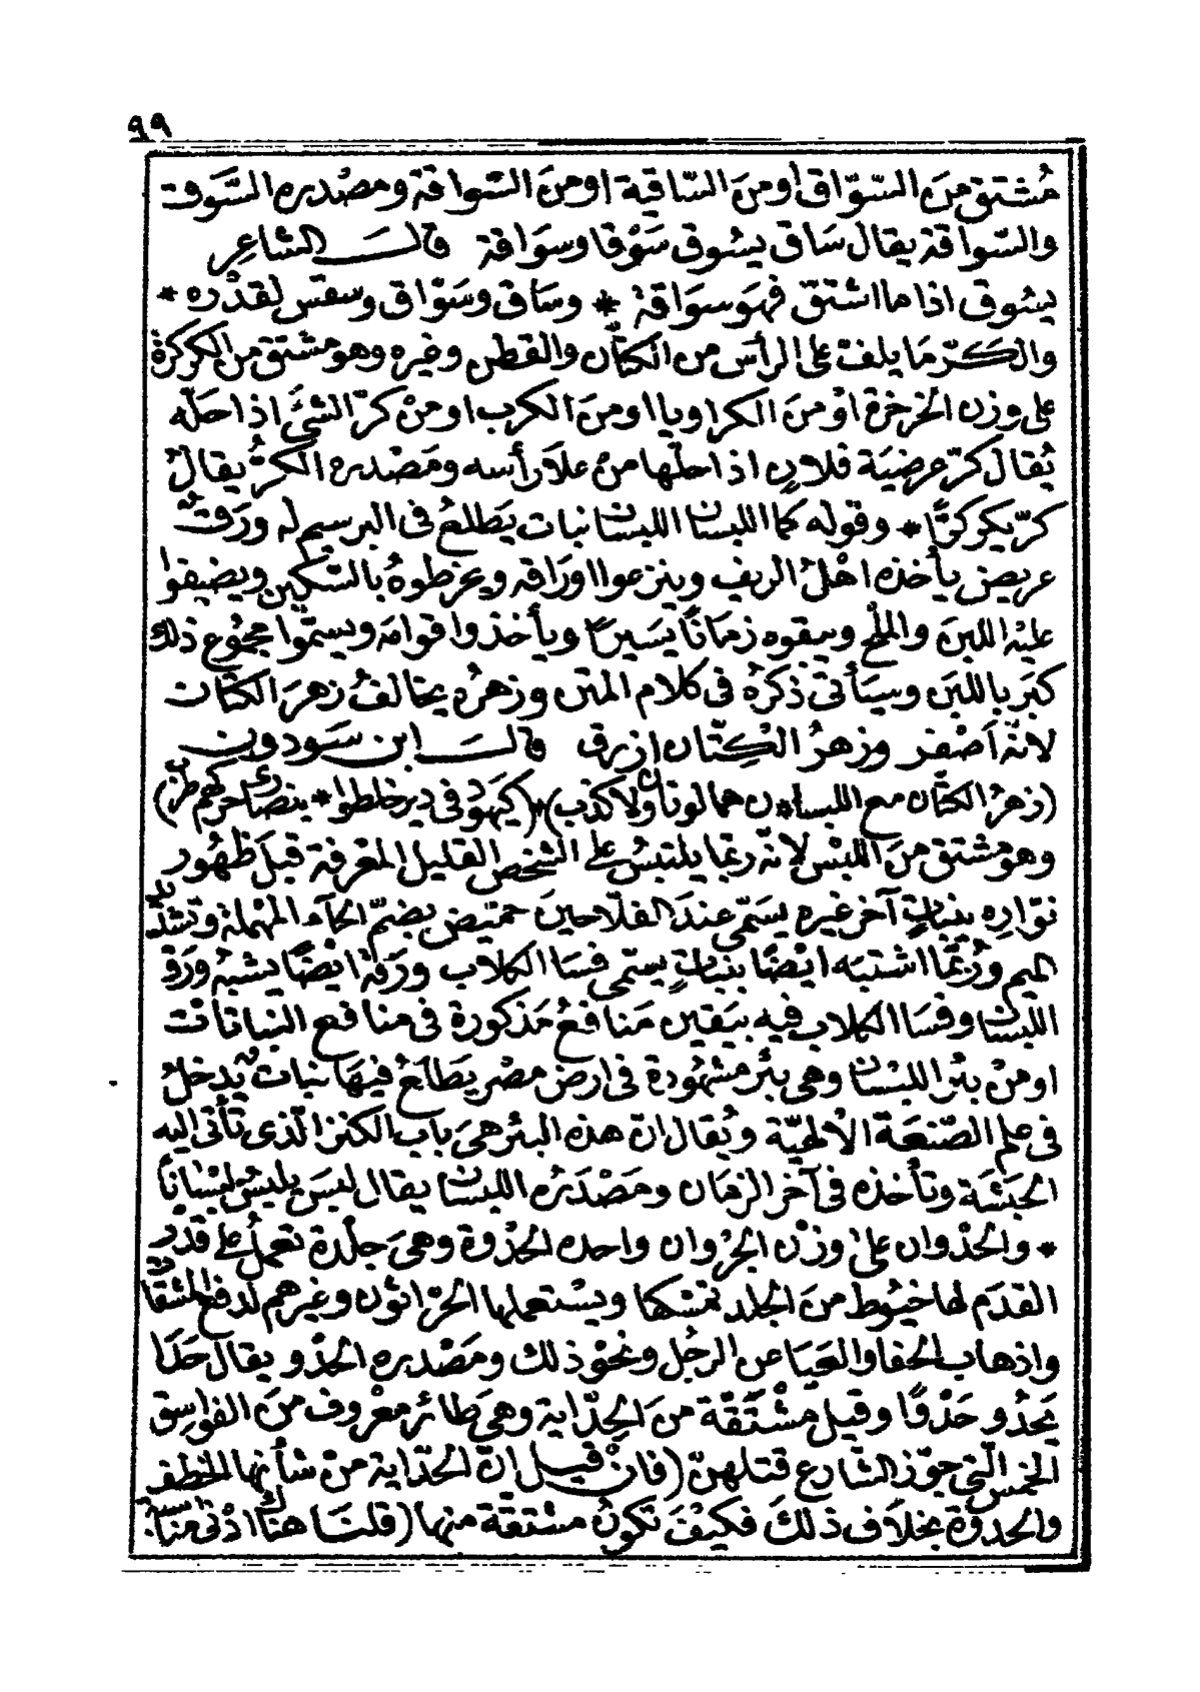 ٩٩
مُشتق من السّواق او من السّاقية او من السّواقة ومصْدره السَّوق
والسّواقة يقال سَاق يسُوق سَوْقا وسوَاقة قالـــَ الشاعر
يسُوق اذا ما اشتقّ فهو سواقة * وسَاق وسَوّاق وسقس لقدْره *
والكـَـرّ مَا يلف على الرأس من الكتّان والقطن وغيره وهو مشتق من الكركرة
على وزن الخرخرة اوْ من الكراويا او منَ الكرب او منْ كرّ الشئ اذا حَلّه
يُقال كرّ عرضيَة فلانٍ اذا حلّها منْ علا رأسه ومَصْدره الكرّ يقالُ
كرّ يكر كرًّا * وقوله كما اللبسان اللبسان نبات يَطلعُ فى البرسيم له ورَقٌ
عريض يأخذه اهْلُ الريف وينزعوا اورَاقه ويخرطوهُ بالسّكين ويضيفوا
عليْه اللبن والملْح ويبقوه زمَانًا يَسيرًا ويأخذوا قوامه ويسمّوا مجمُوع ذلك
كبَر باللبَن وسيَأتى ذكرهُ فى كلام المتن وزهرُه يخالفُ زهرَ الكتان
لانّه اَصْفر وزهرُ الكِتّان ازرق قالـــَ ابن سَودون
(زهرُ الكتّان مع اللبسان هما لونان ولا كذب)*(كيَهوَد فى دير خلطوا * بنصارى حركهم طرب)
وهو مشتق منَ اللبْس لانّه ربّما يلتبسُ على الشخص القليل المعْرفة قبلَ ظهُور
نوّاره بنباتٍ آخر غيره يسَمّى عندَ الفلاحينَ حمّيَض بضمّ الحآء المهْملة وتشديد
الميم ورُبّما اشتبَه ايْضًا بنباتٍ يسمّى فسَا الكلاب ورَقهُ ايضًا يشبهُ ورَق
اللبسان وفسَا الكلاب فيه بيَقين مَنافعُ مَذكورة فى منافع النباتات
او منْ بئر اللبْسان وهى بئر مشهُودة فى ارض مصْر يَطلعُ فيهَا نبات يدخلُ
فى علم الصّنعَة الْالهيّة ويُقال انّ هذه البئر هىَ باب الكنز الّذى تأتى اليه
الحبَشة وتأخذه فى آخر الزمَان ومَصْدَرُه اللبسان يقال لبسَ يلبسُ لبْسَانًا
* والحذْوان علىٰ وزْن الجرْوان واحده الحذْوة وهىَ جلْدة تعْملُ على قدْر
القدَم لها خيُوط منَ الجلد تمْسكها ويسْتعملها الحرّاثون وغيرهم لدفع المشقّة
واذهاب الحفا والعيَا عن الرجُل ونحْو ذلك ومَصْدره الحذْو يقال حَذَا
يَحذُو حَذْوًا وقيل مشْتَقّة منَ الحِدّاية وهىَ طائر معْروف منَ الفواسق
الخمس الّتى جوّز الشّارع قتلهنّ (فانْ قيـــل انّ الحدّاية منْ شأنها الخطف
والحذْوَة بخلَاف ذلكَ فكيْفَ تكونُ مشتقّة منها (قلنَا هناك اذْنى مناسبة